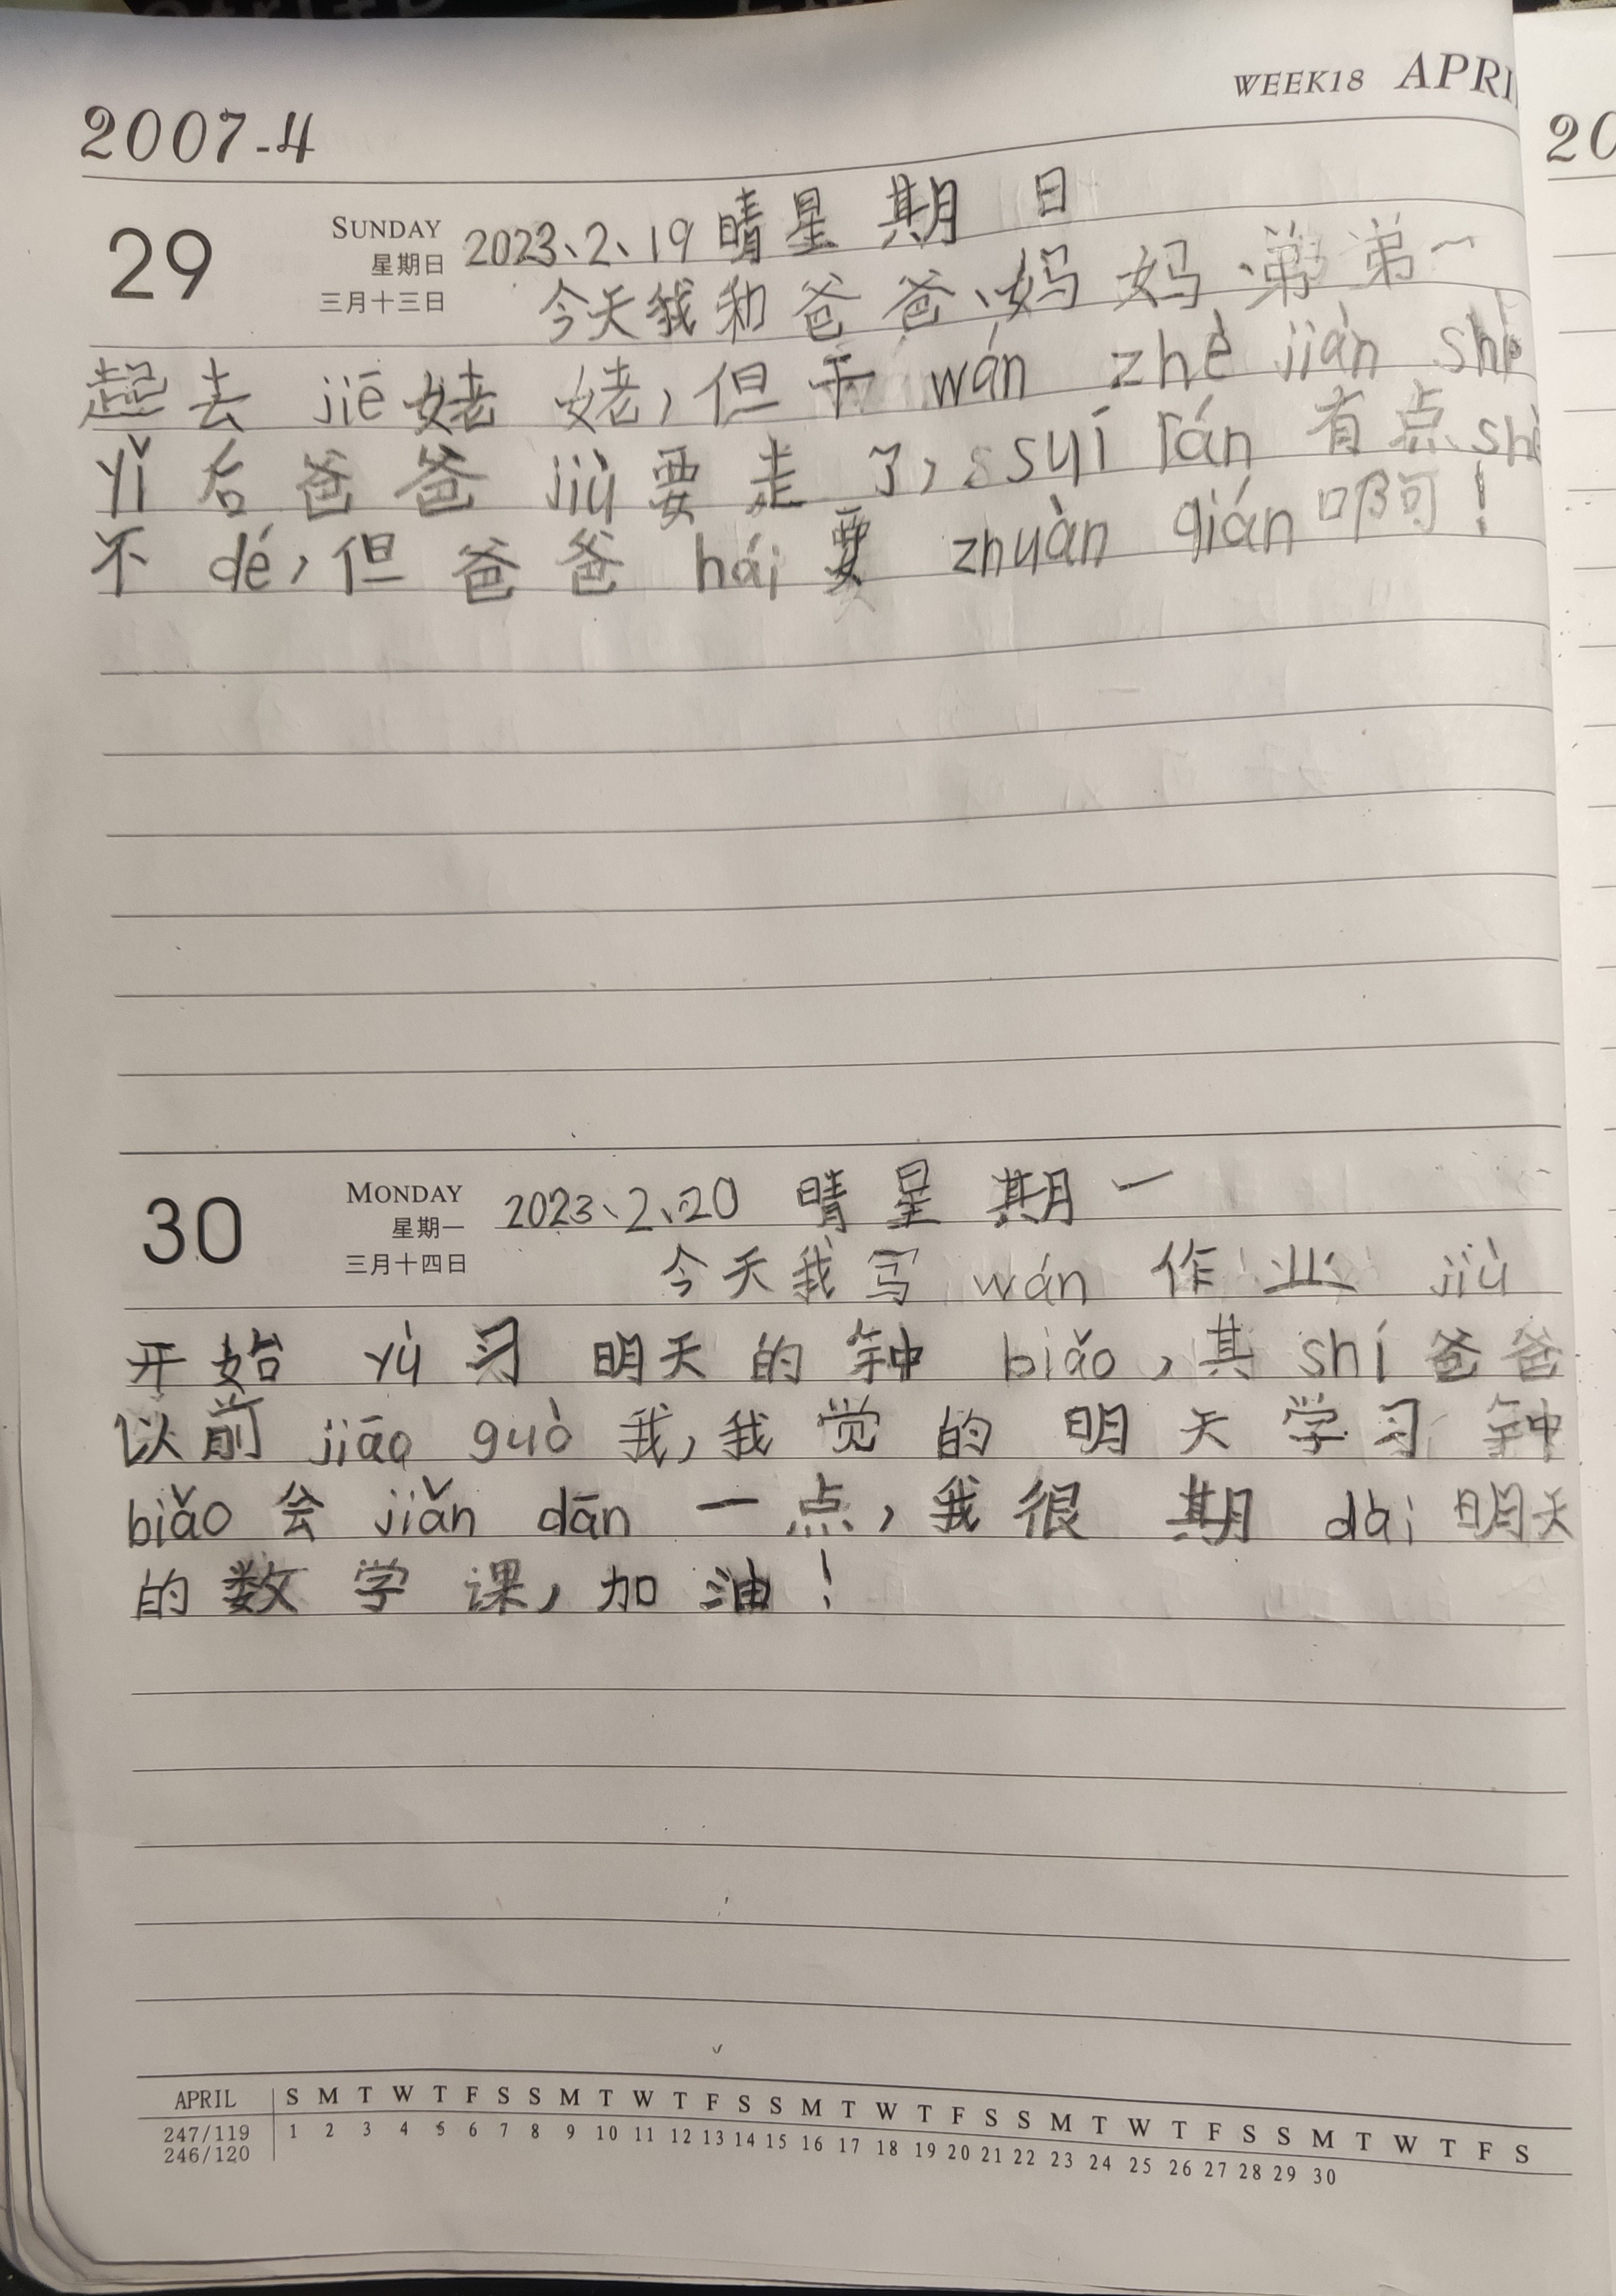 WEEK18 APRI
2007-4
20
29 SUNDAY 2023、2、19 晴星期日
星期日
三月十三日 今天我和爸爸、妈妈、弟弟一
起去 jiē 姥姥，但干 wán zhè jiàn shì
yǐ 后爸爸 jiù 要走了，suī rán 有点 shě
不 dé，但爸爸 hái 要 zhuàn qián 啊！
30 MONDAY 2023、2、20 晴星期一
星期一
三月十四日 今天我写 wán 作业 jiù
开始 yù 习明天的钟 biǎo，其 shí 爸爸
以前 jiāo guò 我，我觉的明天学习钟
biǎo 会 jiǎn dān 一点，我很期 dài 明天
的数学课，加油！
APRIL S M T W T F S S M T W T F S S M T W T F S S M T W T F S S M T W T F S
247/119 1 2 3 4 5 6 7 8 9 10 11 12 13 14 15 16 17 18 19 20 21 22 23 24 25 26 27 28 29 30
246/120